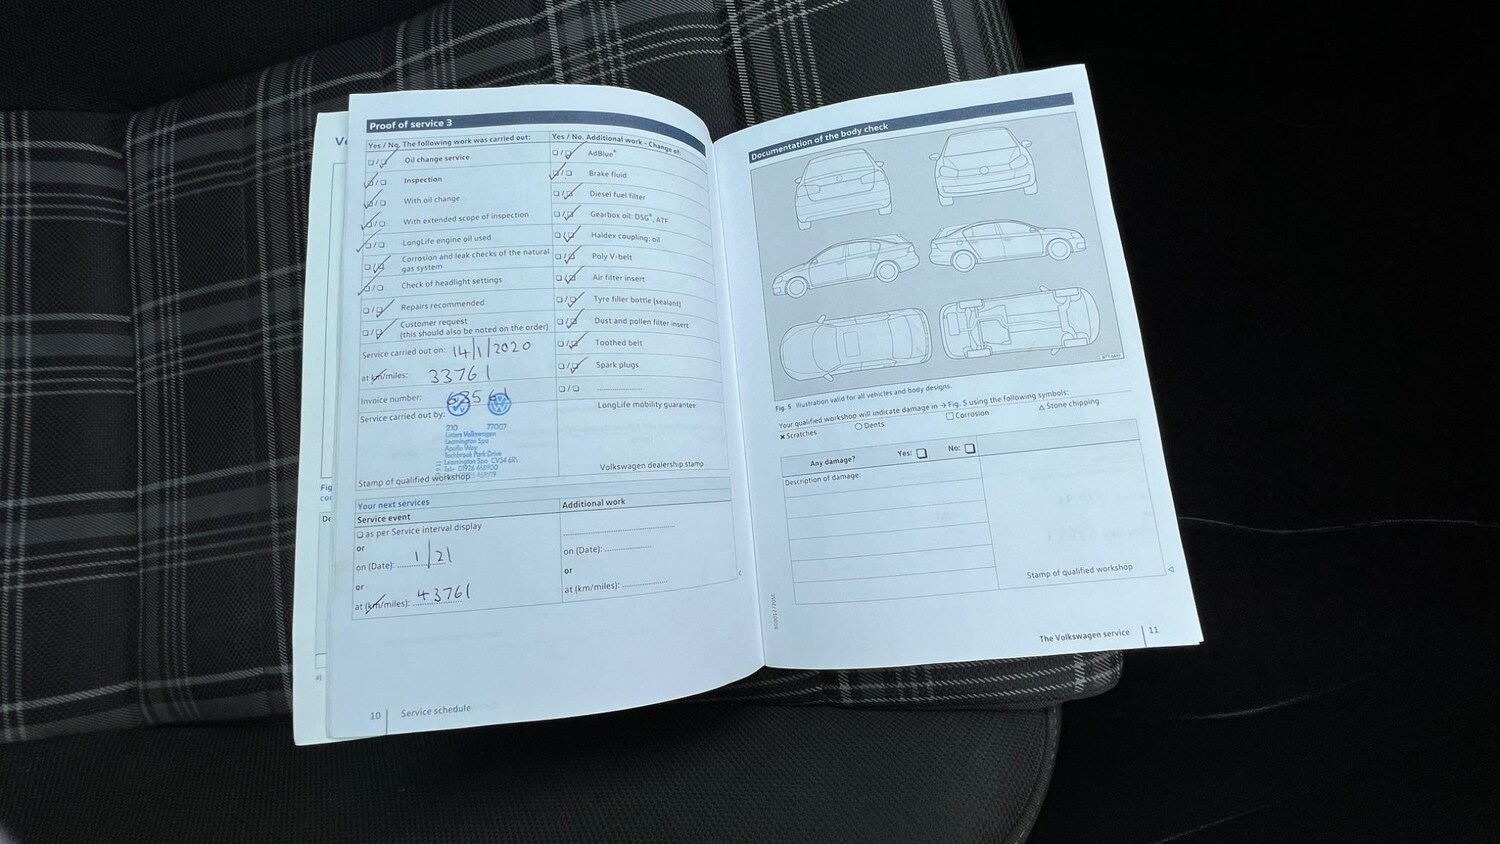 Proof of service 3
Yes / No. The following work was carried out:
Oil change service
Inspection
With oil change
With extended scope of inspection
LongLife engine oil used
Corrosion and leak checks of the natural
gas system
Check of headlight settings
Repairs recommended
Customer request
(this should also be noted on the order)
Service carried out on: 14/1/2020
at km/miles: 33761
Invoice number:
Service carried out by:
210 77007
Listers Volkswagen
Leamington Spa
Apollo Way
Tachbrook Park Drive
Leamington Spa CV34 6RL
Stamp of qualified workshop
Yes / No. Additional work - Change of:
AdBlue®
Brake fluid
Diesel fuel filter
Gearbox oil: DSG®, ATF
Haldex coupling: oil
Poly V-belt
Air filter insert
Tyre filler bottle (sealant)
Dust and pollen filter insert
Toothed belt
Spark plugs
LongLife mobility guarantee:
Volkswagen dealership stamp
Your next services
Service event
as per Service interval display
or
on (Date): 1/21
or
at (km/miles): 43761
Additional work
on (Date):
or
at (km/miles):
10 Service schedule
Documentation of the body check
Fig. 5 Illustration valid for all vehicles and body designs.
Your qualified workshop will indicate damage in → Fig. 5 using the following symbols:
Scratches
Dents
Corrosion
Stone chipping
Any damage? Yes: No:
Description of damage:
Stamp of qualified workshop
The Volkswagen service 11